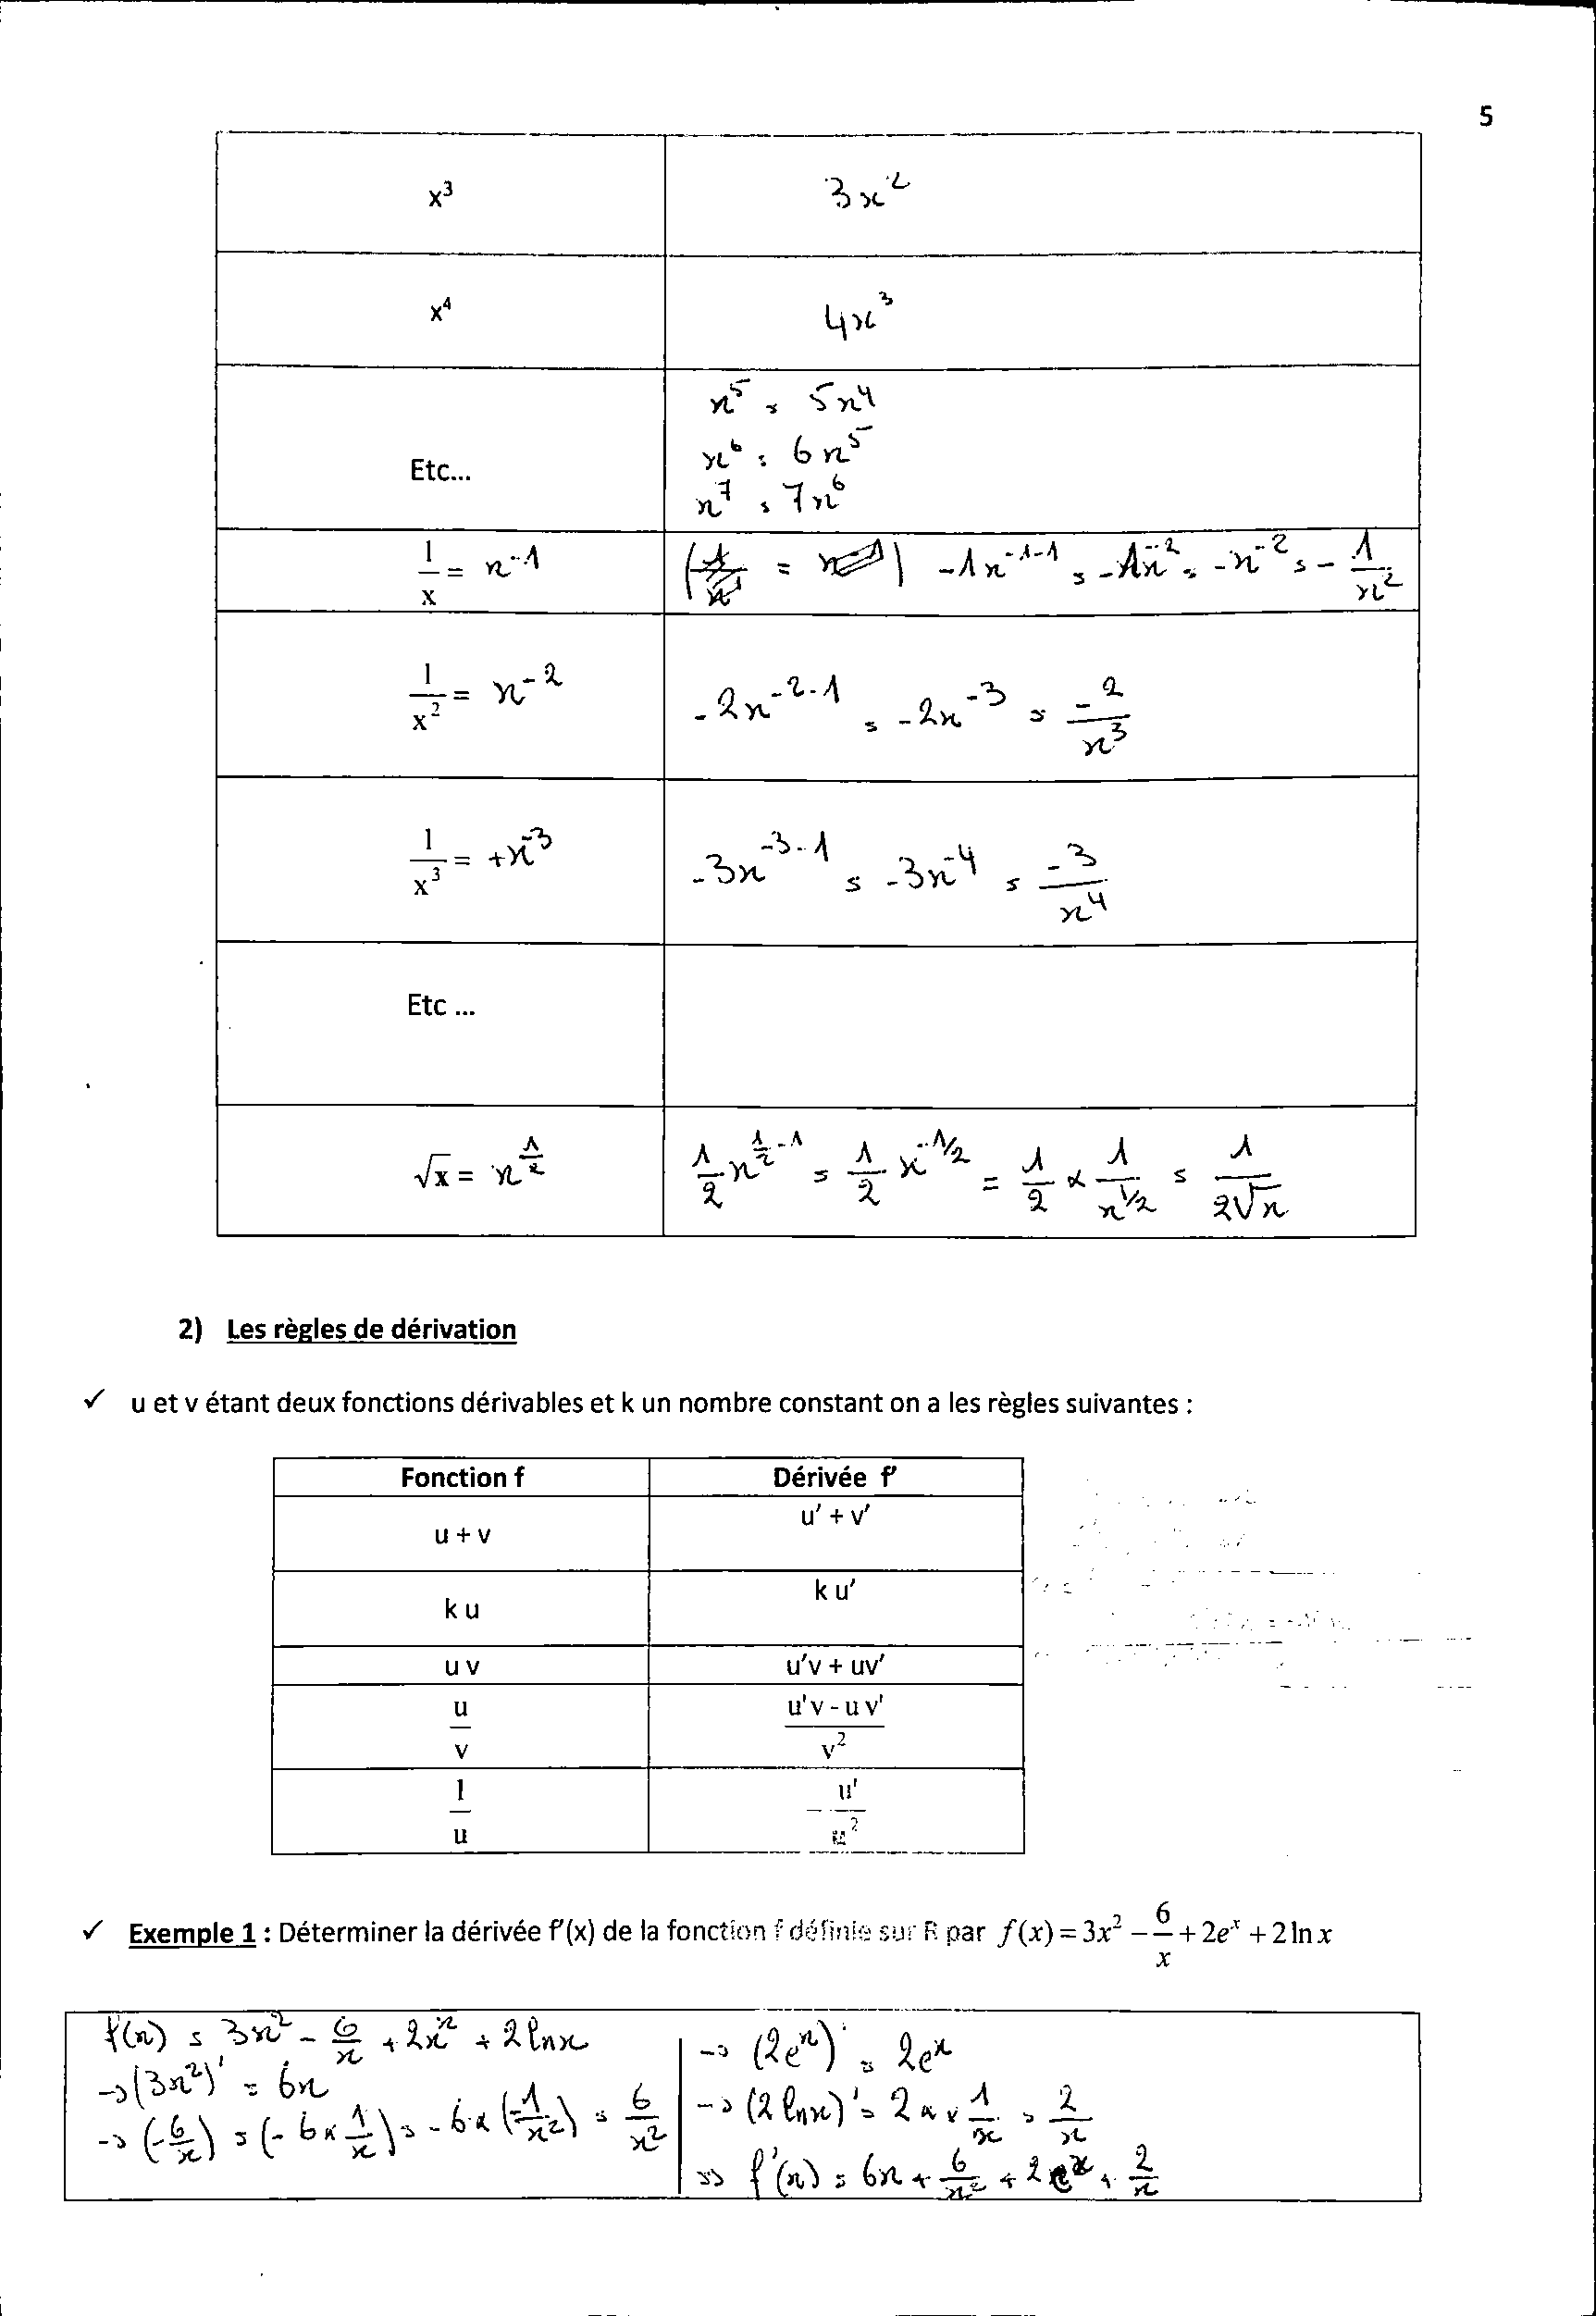 5
x³ 3x²
x⁴ 4x³
x⁵ = 5x⁴
x⁶ = 6x⁵
Etc...
x⁷ = 7x⁶
1/x = x⁻¹ -1x⁻¹⁻¹ = -1x⁻² = -x⁻² = - 1/x²
1/x² = x⁻² -2x⁻²⁻¹ = -2x⁻³ = -2/x³
1/x³ = +x⁻³ -3x⁻³⁻¹ = -3x⁻⁴ = -3/x⁴
Etc ...
√x = x^(1/2) 1/2 x^(1/2 - 1) = 1/2 x^(-1/2) = 1/2 × 1/x^(1/2) = 1/(2√x)
2) Les règles de dérivation
✓ u et v étant deux fonctions dérivables et k un nombre constant on a les règles suivantes :
Fonction f Dérivée f'
u + v u' + v'
k u k u'
u v u'v + uv'
u/v (u'v - u v')/v²
1/u - u'/u²
✓ Exemple 1 : Déterminer la dérivée f'(x) de la fonction f définie sur R par f(x) = 3x² - 6/x + 2eˣ + 2 ln x
f(x) = 3x² - 6/x + 2xˣ + 2 ln x
→ (3x²)' = 6x
→ (-6/x) = (-6 × 1/x) = -6 × (-1/x²) = 6/x²
→ (2eˣ)' = 2eˣ
→ (2 ln x)' = 2 × × 1/x = 2/x
⇒ f'(x) = 6x + 6/x² + 2eˣ + 2/x